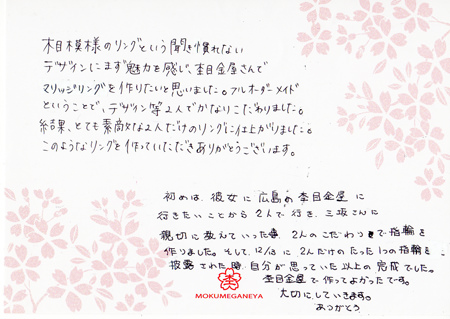 木目模様のリングという聞き慣れない
デザインにまず魅力を感じ、杢目金屋さんで
マリッジリングを作りたいと思いました。フルオーダーメイド
ということで、デザイン等2人でかなりこだわりました。
結果、とても素敵な2人だけのリングに仕上がりました。
このようなリングを作っていただきありがとうございます。
初めは、彼女に広島の杢目金屋に
行きたいことから2人で行き、三坂さんに
親切に教えていった事、2人のこだわりきで指輪を
作りました。そして、12/13に2人だけのたった1つの指輪を
披露された時、自分が思っていた以上の完成でした。
杢目金屋で作ってよかったです。
大切にしていきます。
ありがとう
MOKUMEGANEYA